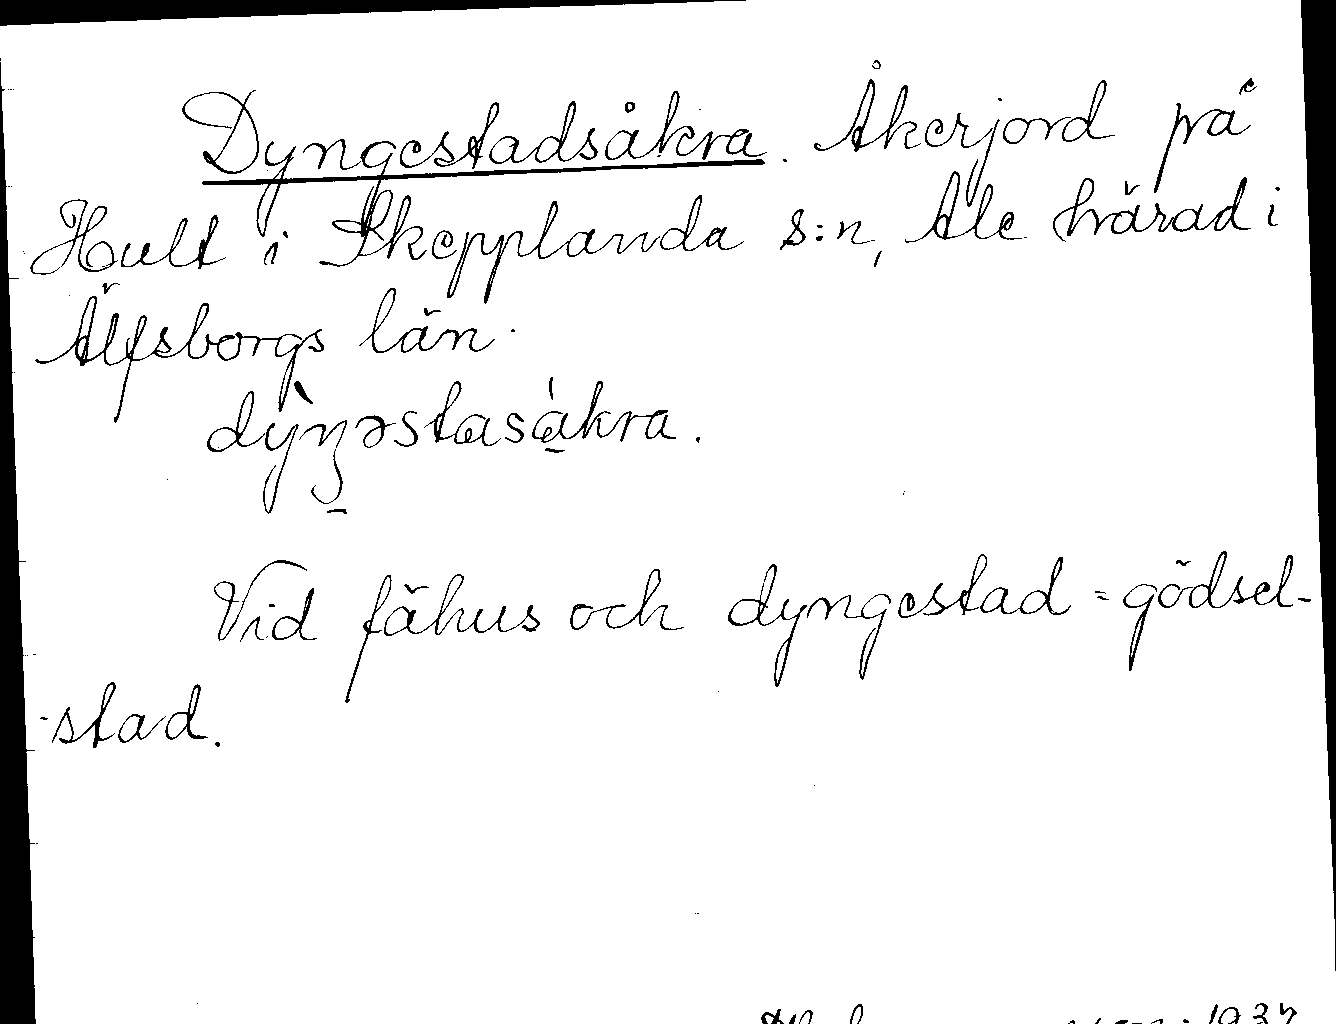 Dyngestadsåkra. Åkerjord på
Hult i Skepplanda s:n, Ale härad i
Älfsborgs län.
dỳŋəstasåkra.
Vid fähus och dyngestad = gödsel-
-stad.
1937